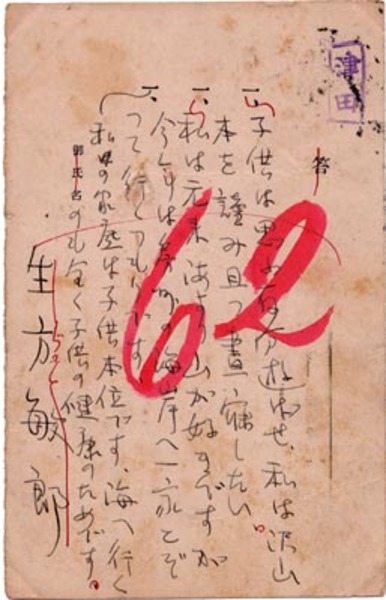 津田
答
一、子供は思ふ存分遊ばせ、私は沢山
本を読み且つ書い寝したい。
一、私は元来海より山が好きですが
今年は房州の海岸へ一家こぞ
つて行くつもりです。
私の家庭は子供本位です、海へ行く
のも全く子供の健康のためです。
御氏名
生方敏郎
62